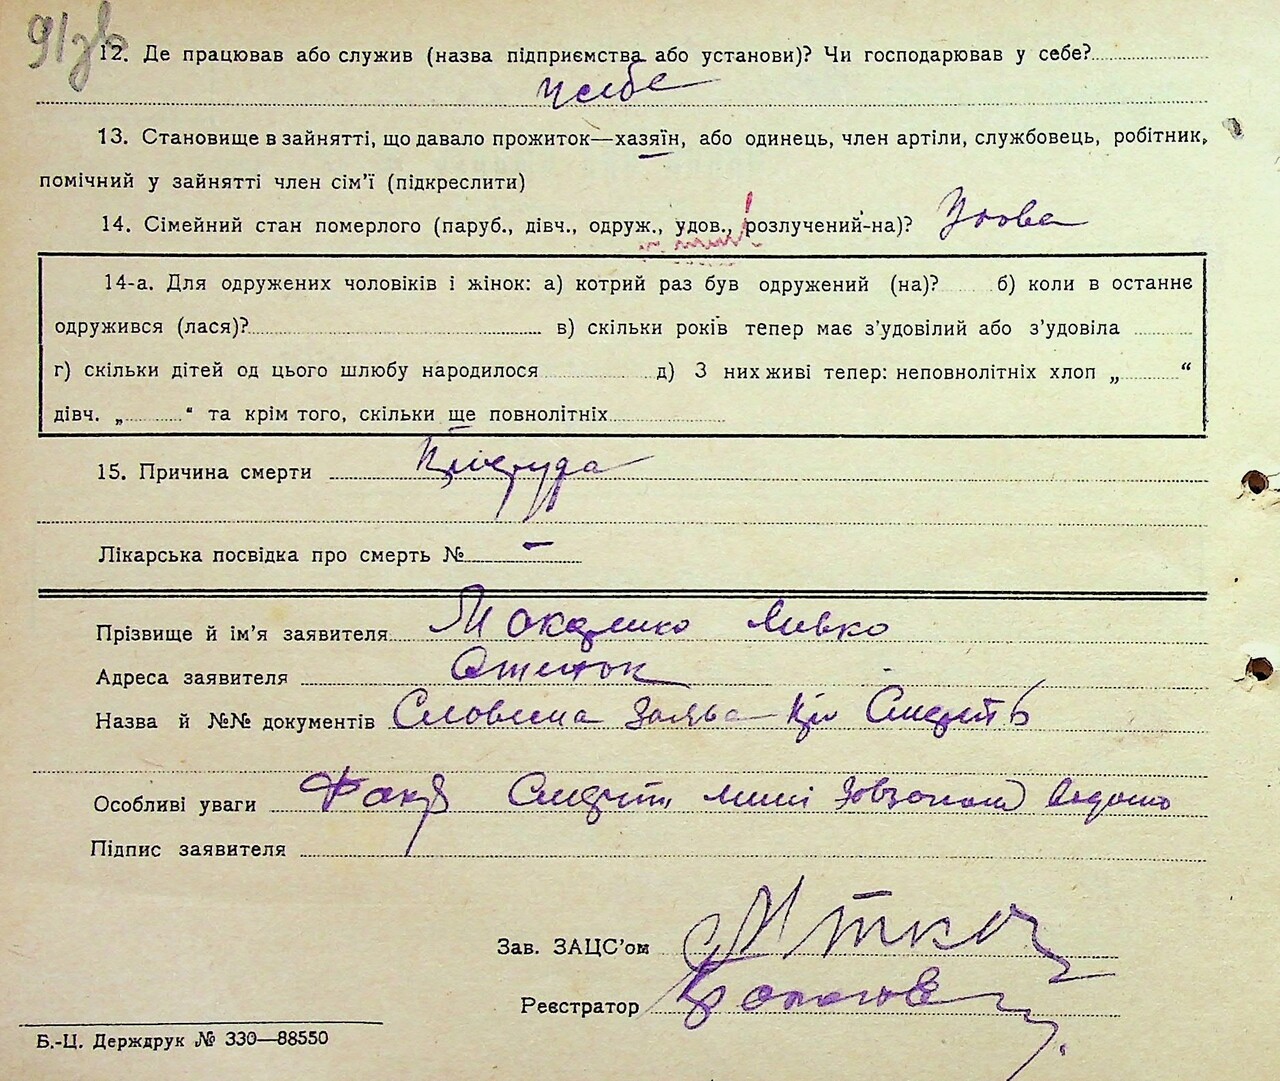 12. Де працював або служив (назва підприємства або установи)? Чи господарював у себе?
У себе
13. Становище в зайнятті, що давало прожиток—хазяїн, або одинець, член артіли, службовець, робітник,
помічний у зайнятті член сім'ї (підкреслити)
14. Сімейний стан померлого (паруб., дівч., одруж., удов., розлучений-на)? Удова
14-а. Для одружених чоловіків і жінок: а) котрий раз був одружений (на)? б) коли в останнє
одружився (лася)? в) скільки років тепер має з'удовілий або з'удовіла
г) скільки дітей од цього шлюбу народилося д) З них живі тепер: неповнолітніх хлоп „ “
дівч. „ “ та крім того, скільки ще повнолітніх
15. Причина смерти Простуда
Лікарська посвідка про смерть № –
Прізвище й ім'я заявителя Левко
Адреса заявителя
Назва й №№ документів Словесна заява про смерть
Особливі уваги Факт смерти мині
Підпис заявителя
Зав. ЗАЦС'ом
Реєстратор
Б.-Ц. Держдрук № 330—88550